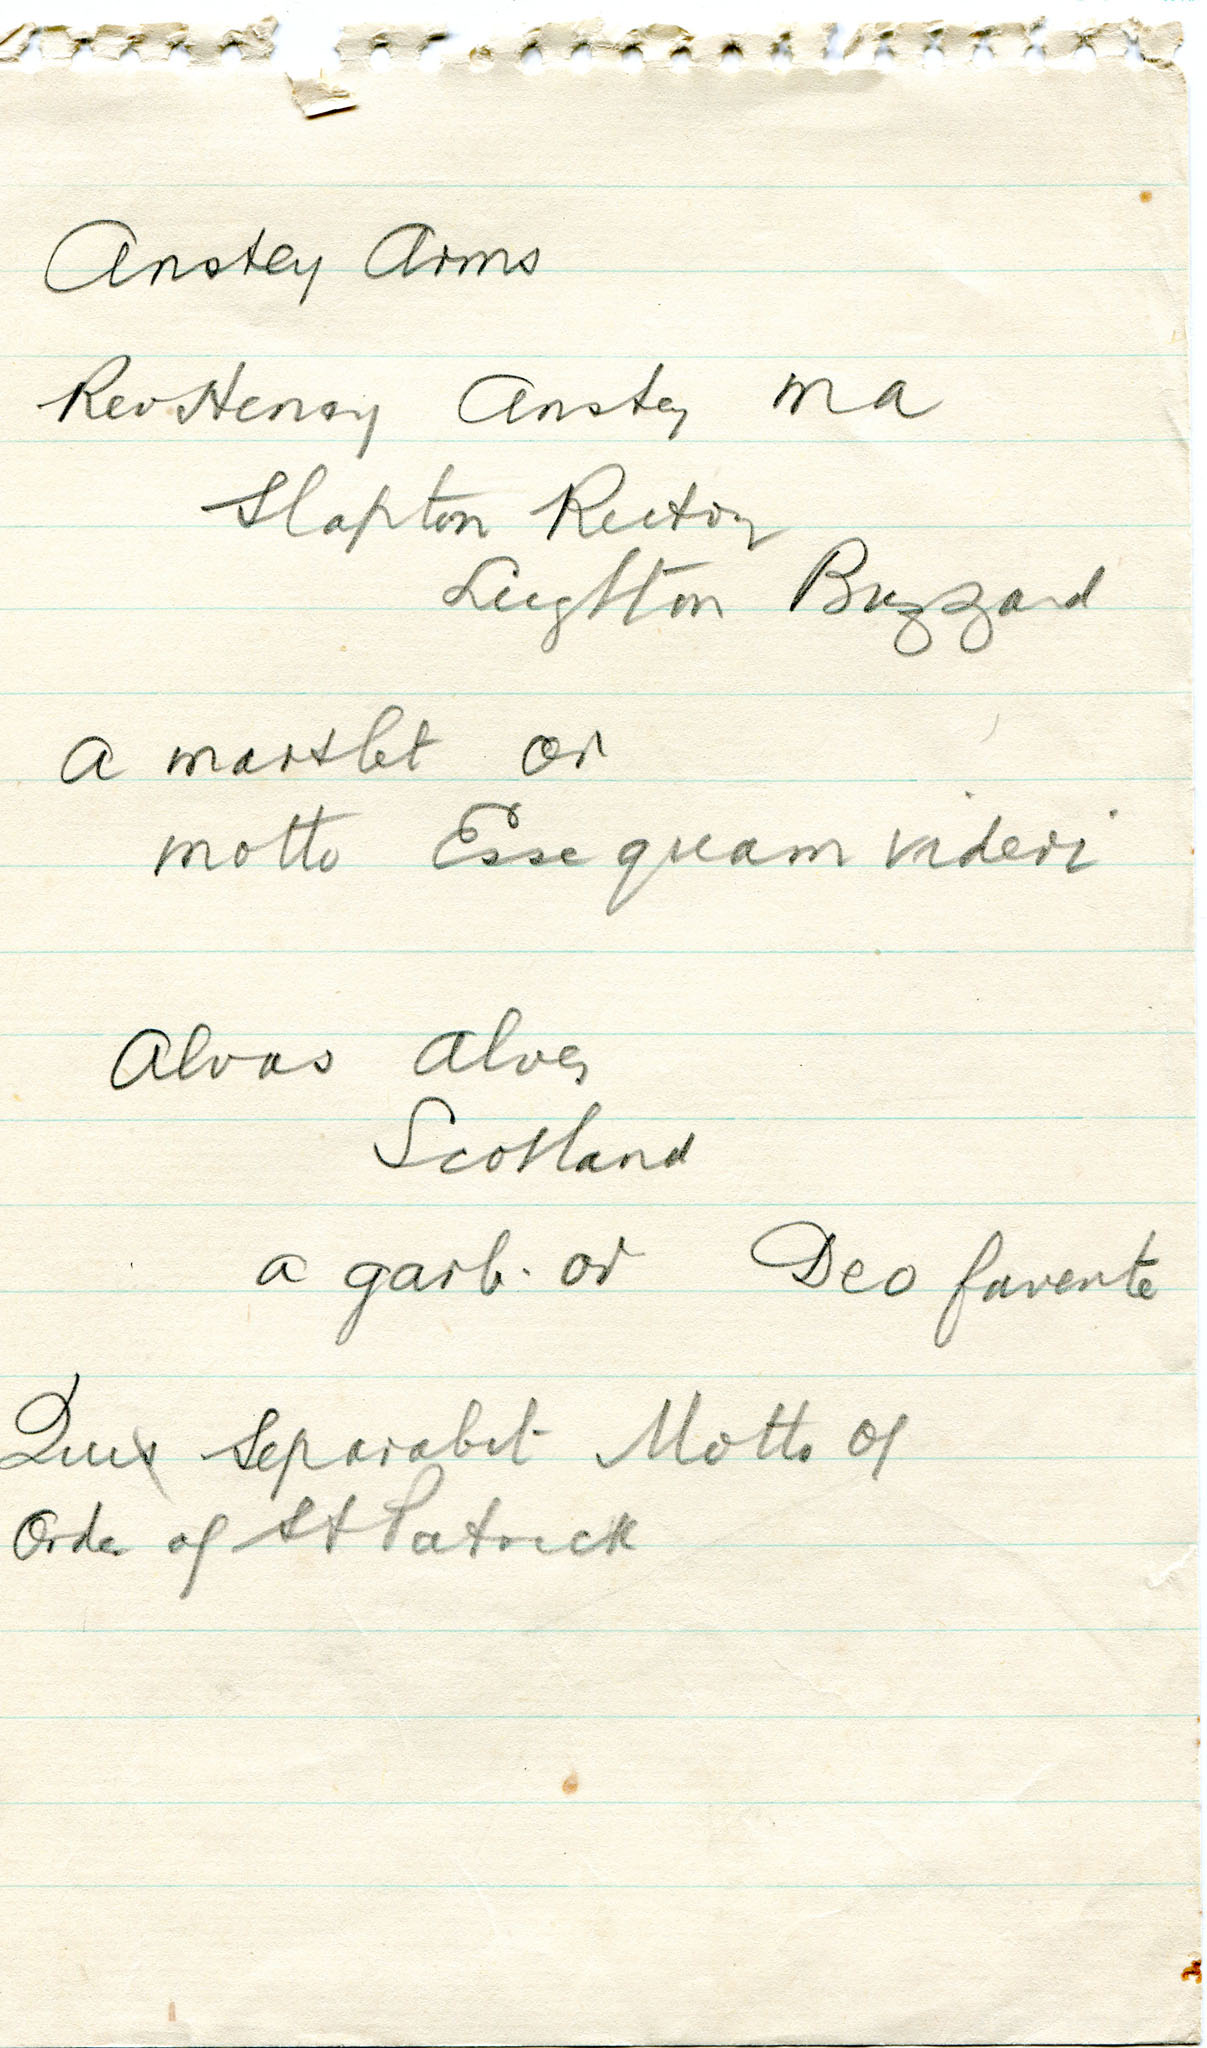 Anstey Arms
Rev Henry Anstey MA
Slapton Rectory
Leighton Buzzard
A martlet or
motto Esse quam videri
Alvas Alves
Scotland
a garb. or Deo favente
Quis Separabit Motto of
Order of St Patrick